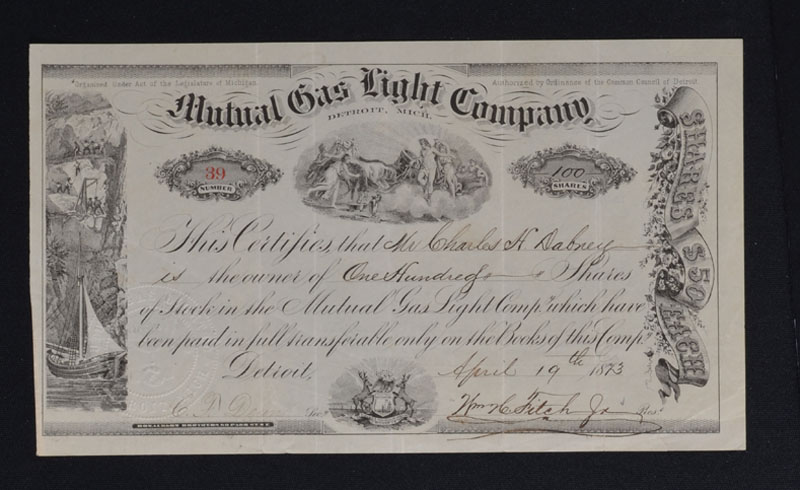 Organized Under Act of the Legislature of Michigan.
Authorized by Ordinance of the Common Council of Detroit.
Mutual Gas Light Company,
DETROIT, MICH.
39
NUMBER
100
SHARES
This Certifies, that Mr Charles H Dabney
is the owner of One Hundred Shares
of Stock in the Mutual Gas Light Comp.y which have
been paid in full transferable only on the Books of this Comp.y
Detroit, April 19th 1873
C. P. Secy
Wm H Fitch Jr Prest
SHARES $50 EACH